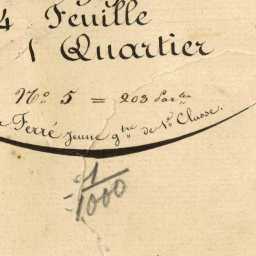 4 Feuille
1 Quartier
Nº 5 = 203 Par.lles
Ferré jeune g.tre de 1º Classe.
1/1000